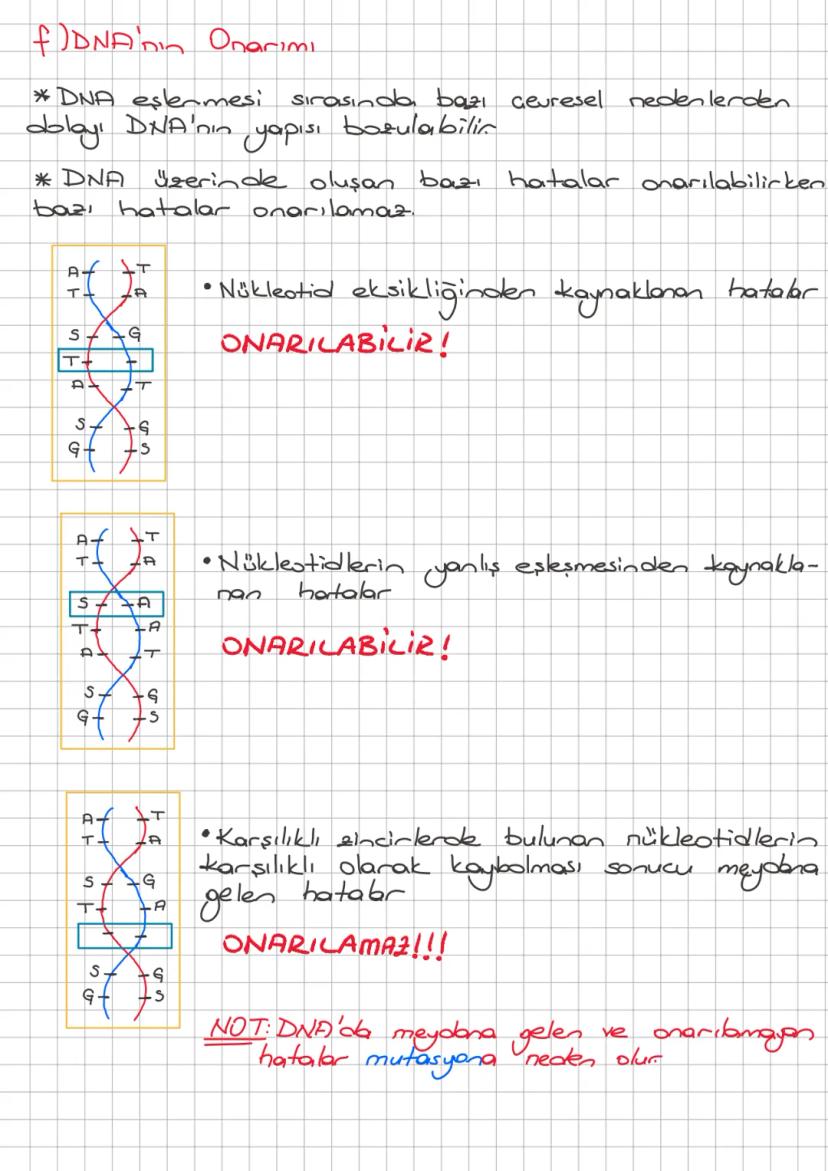 f) DNA'nın Onarımı
* DNA eşlenmesi sırasında bazı çevresel nedenlerden
dolayı DNA'nın yapısı bozulabilir
* DNA üzerinde oluşan bazı hatalar onarılabilirken
bazı hatalar onarılamaz.
A T
T A
S G
T
A T
S G
G S
• Nükleotid eksikliğinden kaynaklanan hatalar
ONARILABİLİR!
A T
T A
S A
T A
A T
S G
G S
• Nükleotidlerin yanlış eşleşmesinden kaynakla-
nan hatalar
ONARILABİLİR!
A T
T A
S G
T A
S G
G S
• Karşılıklı zincirlerde bulunan nükleotidlerin
karşılıklı olarak kaybolması sonucu meydana
gelen hatalar
ONARILAMAZ!!!
NOT: DNA'da meydana gelen ve onarılamayan
hatalar mutasyona neden olur